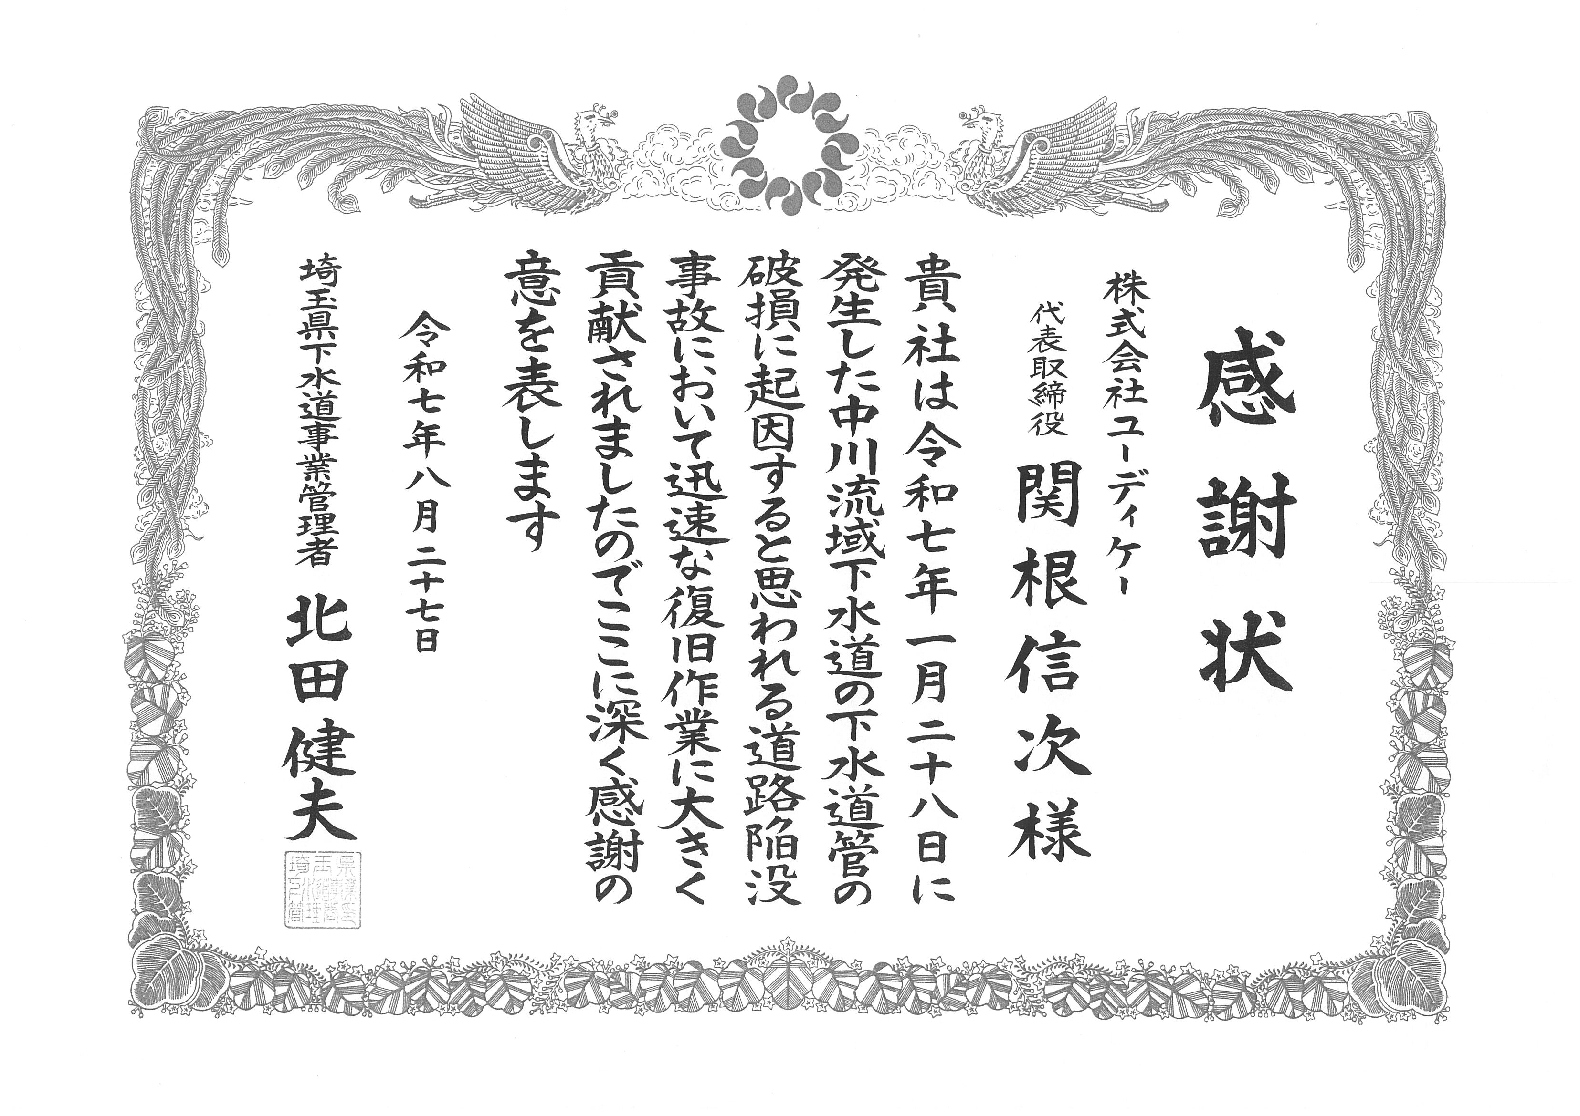 感謝状
株式会社ユーディケー
代表取締役 関根信次様
貴社は令和七年一月二十八日に
発生した中川流域下水道の下水道管の
破損に起因すると思われる道路陥没
事故において迅速な復旧作業に大きく
貢献されましたのでここに深く感謝の
意を表します
令和七年八月二十七日
埼玉県下水道事業管理者 北田健夫